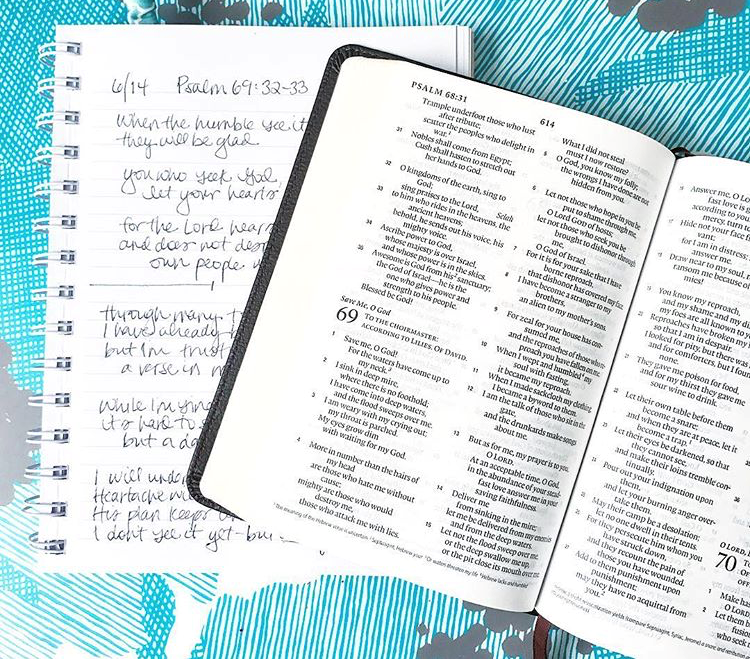 6/14 Psalm 69:32-33
When the humble see it
they will be glad
you who seek God
let your hearts
for the Lord hears
and does not desp
own people
through many
I have already
but I'm trust
a verse in m
While I'm
it's hard to
but a da
I will unde
Heartache
His plan keeps
I don't see it yet but
PSALM 68:31
614
Trample underfoot those who lust
after tribute;
scatter the peoples who delight in
war.
31 Nobles shall come from Egypt;
Cush shall hasten to stretch out
her hands to God.
32 O kingdoms of the earth, sing to
God;
sing praises to the Lord, Selah
33 to him who rides in the heavens, the
ancient heavens;
behold, he sends out his voice, his
mighty voice.
34 Ascribe power to God,
whose majesty is over Israel,
and whose power is in the skies.
35 Awesome is God from his sanctuary;
the God of Israel—he is the
one who gives power and
strength to his people.
Blessed be God!
Save Me, O God
69 TO THE CHOIRMASTER:
ACCORDING TO LILIES. OF DAVID.
1 Save me, O God!
For the waters have come up to
my neck.
2 I sink in deep mire,
where there is no foothold;
I have come into deep waters,
and the flood sweeps over me.
3 I am weary with my crying out;
my throat is parched.
My eyes grow dim
with waiting for my God.
4 More in number than the hairs of
my head
are those who hate me without
cause;
mighty are those who would
destroy me,
those who attack me with lies.
What I did not steal
must I now restore?
5 O God, you know my folly;
the wrongs I have done are not
hidden from you.
6 Let not those who hope in you be
put to shame through me,
O Lord GOD of hosts;
let not those who seek you be
brought to dishonor through
me,
O God of Israel.
7 For it is for your sake that I have
borne reproach,
that dishonor has covered my face.
8 I have become a stranger to my
brothers,
an alien to my mother's sons.
9 For zeal for your house has con-
sumed me,
and the reproaches of those who
reproach you have fallen on me.
10 When I wept and humbled my
soul with fasting,
it became my reproach.
11 When I made sackcloth my clothing,
I became a byword to them.
12 I am the talk of those who sit in the
gate,
and the drunkards make songs
about me.
13 But as for me, my prayer is to you,
O LORD.
At an acceptable time, O God,
in the abundance of your stead-
fast love answer me in your
saving faithfulness.
14 Deliver me
from sinking in the mire;
let me be delivered from my enemies
and from the deep waters.
15 Let not the flood sweep over me,
or the deep swallow me up,
or the pit close its mouth over me.
16 Answer me, O
fast love is
according to y
mercy, turn to
17 Hide not your face
vant;
for I am in distress;
an
18 Draw near to my soul,
ransom me because of
mies!
19 You know my reproach,
and my shame and my
my foes are all known to you
20 Reproaches have broken my
so that I am in despair.
I looked for pity, but there was
and for comforters, but I found
21 They gave me poison for food,
and for my thirst they gave me
sour wine to drink.
22 Let their own table before them
become a snare;
and when they are at peace, let it
become a trap.
23 Let their eyes be darkened, so that
they cannot see,
and make their loins tremble con-
tinually.
24 Pour out your indignation upon
them,
and let your burning anger over-
take them.
25 May their camp be a desolation;
let no one dwell in their tents.
26 For they persecute him whom you
have struck down,
and they recount the pain of
those you have wounded.
27 Add to them punishment upon
punishment;
may they have no acquittal from
you.
O LORD,
70 TO
OF
1 Make has
2 Let them b
fusion
who seek